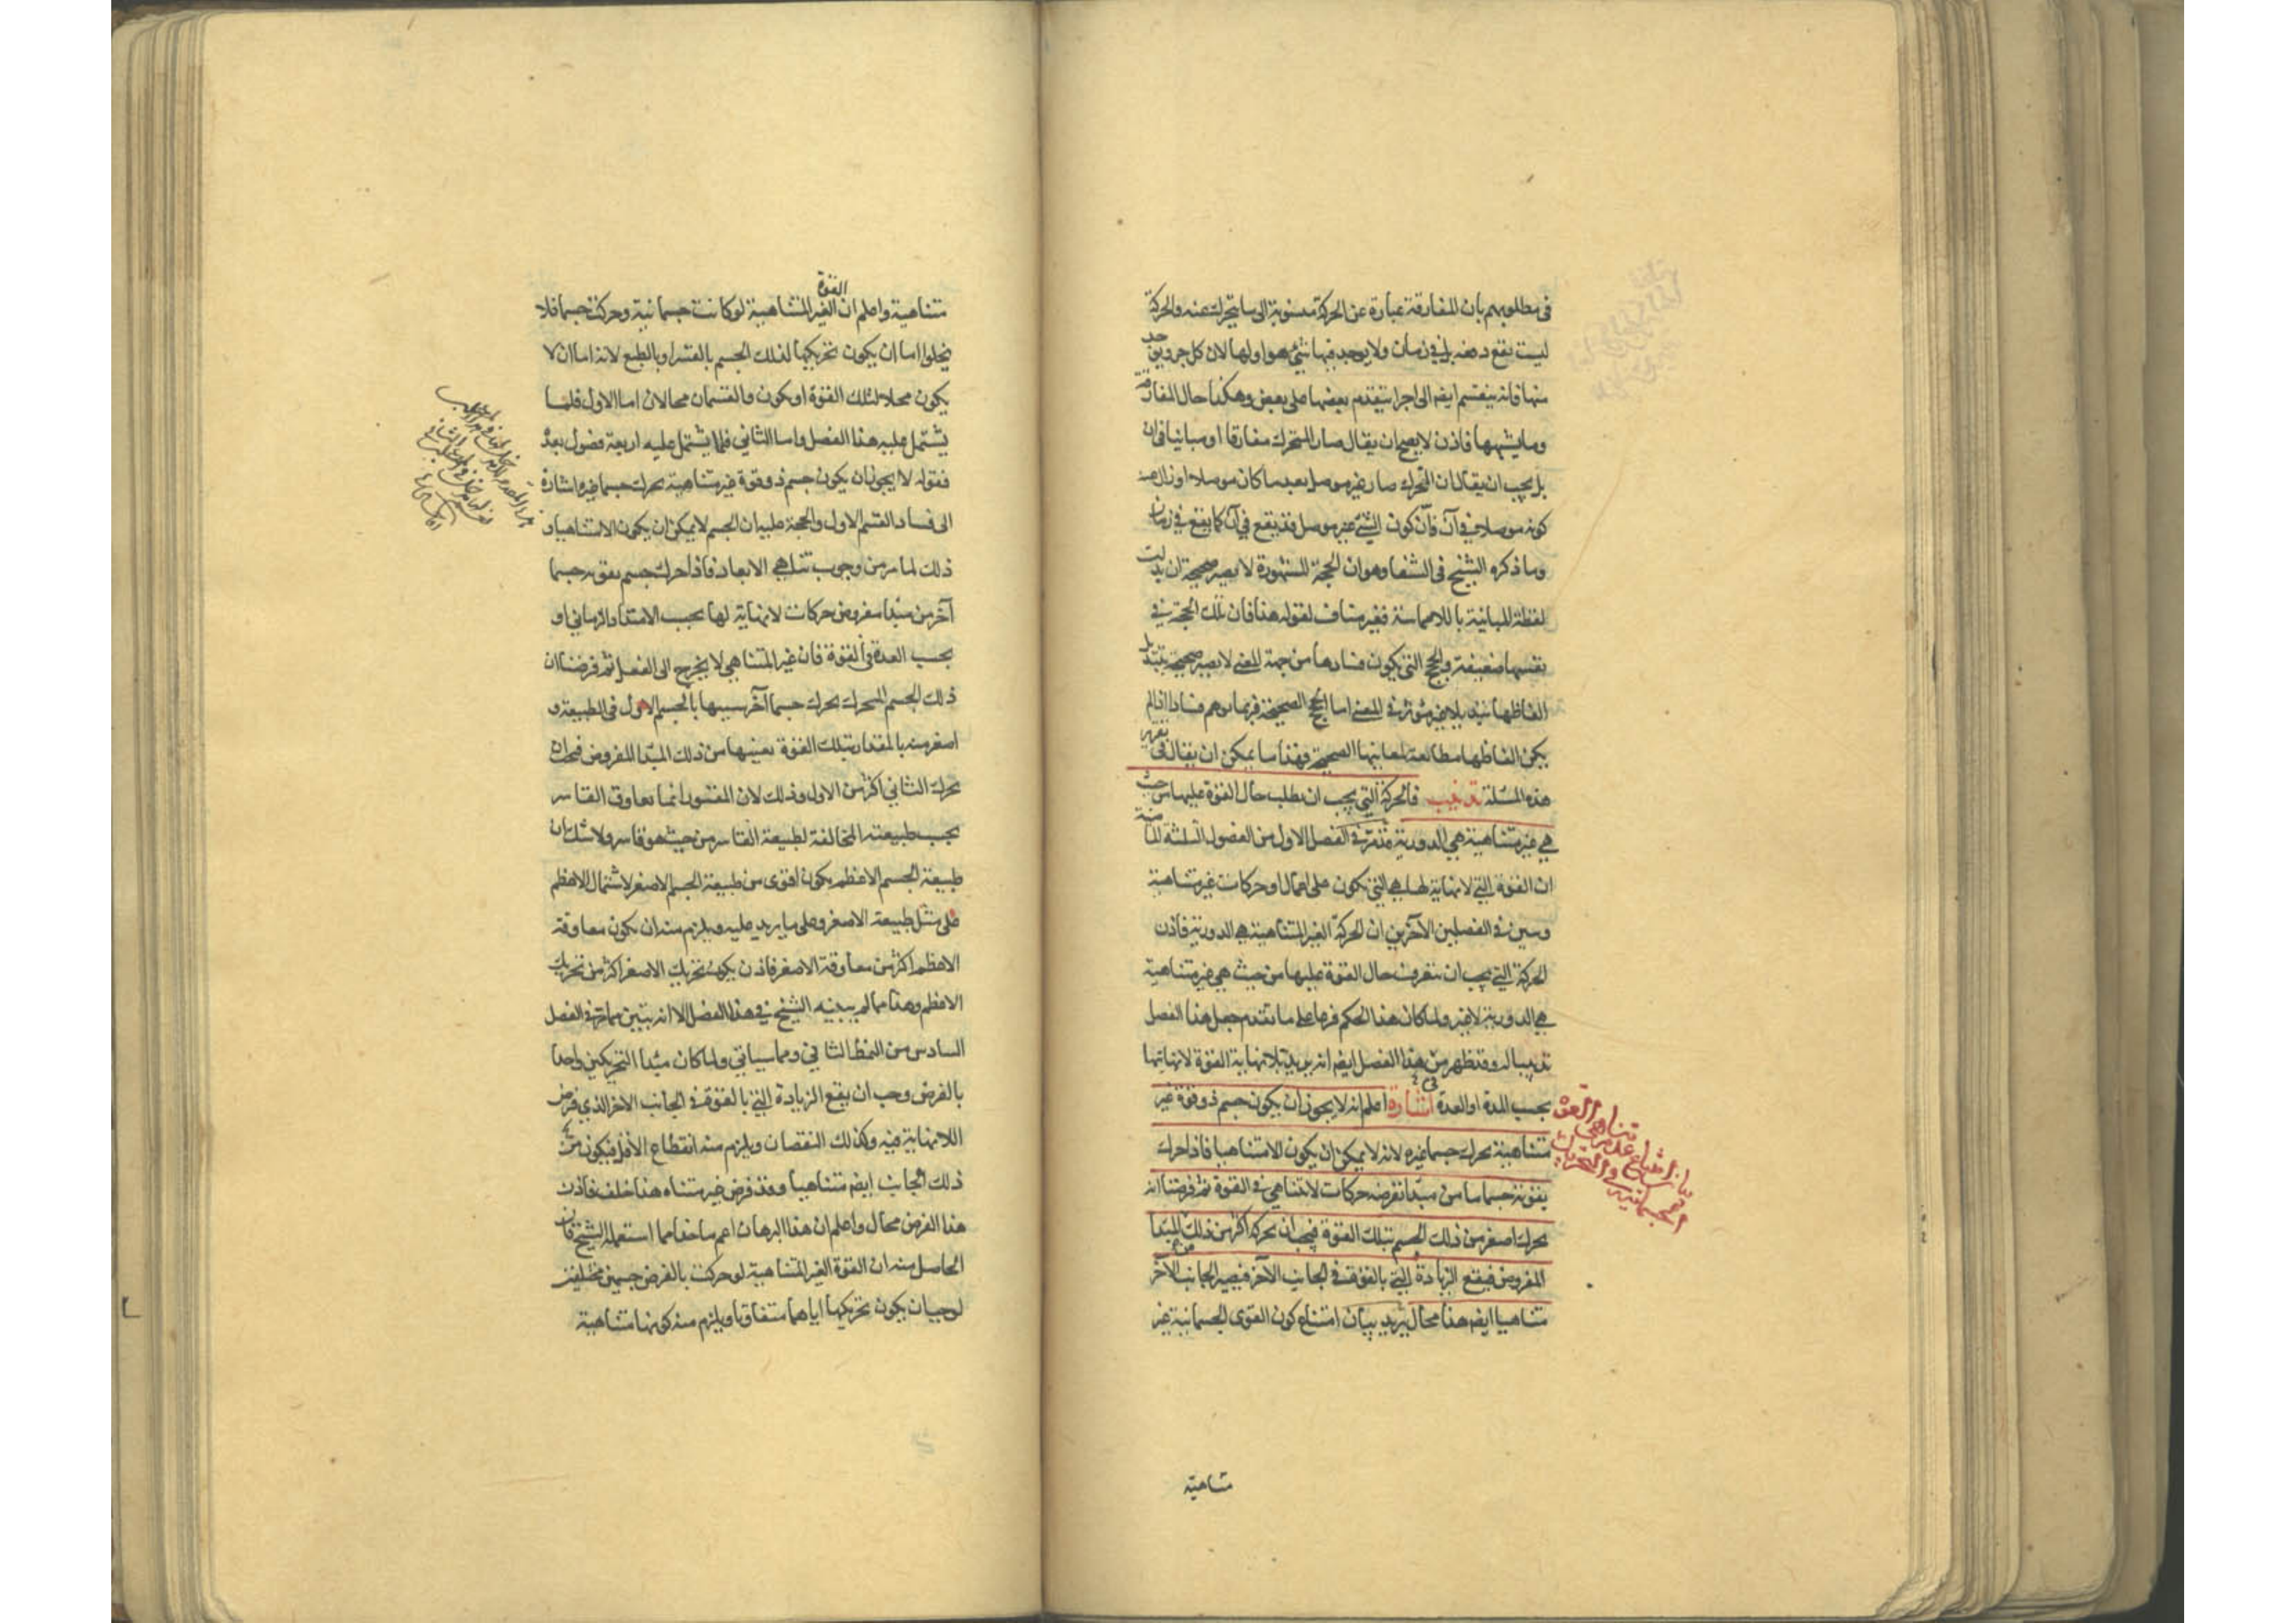 في مطلوبهم بان المفارقة عبارة عن الحركة منسوبة الى ما يتحرك عنه والحركة
ليست يقع دفعة بل في زمان ولا يوجد فيها شئ هو اولها لان كل جزء يوجد
منها فانه ينقسم ايضا الى اجزا يتقدم بعضها على بعض وهكذا حال المفارقة
وما يشبهها فاذن لا يصح ان يقال صار المتحرك مفارقا او مباينا في ان
بل يجب ان يقال ان المتحرك صار غير موصل بعد ما كان موصلا او زال عنه
كونه موصلا في آن فان كون الشئ غير موصل قد يقع في آن كما يقع في زمان
وما ذكره الشيخ في الشفا وهو ان الحجة المشهورة لا يصير صحيحة ان بدلت
لفظة المباينة باللامماسة فغير مناف لقوله هذا فان تلك الحجة في
نفسها ضعيفة والحجج التي يكون فسادها من جهة المعنى لا يصير صحيحة بتبديل
الفاظها تبديلا غير مؤثر في المعنى اما الحجج الصحيحة فربما يوهم فسادا اذا لم
يكن الفاظها مطابقة لمعانيها الصحيحة فهذا ما يمكن ان يقال في تقرير
هذه المسئلة تذنيب فالحركة التي يجب ان يطلب حال القوة عليها من حيث
هي غير متناهية هي الدورية قد مر في الفصل الاول من الفصول الثلثة الماضية
ان القوة التي لا نهاية لها هي التي تكون على اعمال او حركات غير متناهية
وبين في الفصلين الآخرين ان الحركة الغير المتناهية هي الدورية فاذن
الحركة التي يجب ان يتعرف حال القوة عليها من حيث هي غير متناهية
هي الدورية لا غير ولما كان هذا الحكم فرعا على ما تقدم جعل هذا الفصل
تذنيبا له وقد ظهر من هذا الفصل ايضا انه يريد بلا نهاية القوة لا نهايتها
بحسب المدة او العدة اشارة اعلم انه لا يجوز ان يكون جسم ذو قوة غير
متناهية يحرك جسما غيره لانه لا يمكن ان يكون الا متناهيا فاذا حرك
بقوته جسما ما من مبدأ نفرضه حركات لا تتناهى في القوة ثم فرضنا انه
يحرك اصغر من ذلك الجسم بتلك القوة فيجب ان يحركه اكثر من ذلك المبتدا
المفروض فيقع الزيادة التي بالقوة في الجانب الآخر فيصير الجانب الآخر
متناهيا ايضا هذا محال يريد بيان امتناع كون القوى الجسمانية غير
متناهية
متناهية واعلم ان القوة الغير المتناهية لو كانت جسمانية وحركت جسما فلا
يخلوا اما ان يكون تحريكها لذلك الجسم بالقسر او بالطبع لانه اما ان لا
يكون محلا لتلك القوة او يكون والقسمان محالان اما الاول فلما
يشتمل عليه هذا الفصل واما الثاني فلما يشتمل عليه اربعة فصول بعده
فقوله لا يجوز ان يكون جسم ذو قوة غير متناهية يحرك جسما غيره اشارة
الى فساد القسم الاول والحجة عليه ان الجسم لا يمكن ان يكون الا متناهيا و
ذلك لما مر من وجوب تناهي الابعاد فاذا حرك جسم بقوته جسما
آخر من مبدأ مفروض حركات لا نهاية لها بحسب الامتداد الزماني او
بحسب العدة في القوة فان غير المتناهي لا يخرج الى الفعل ثم فرضنا ان
ذلك الجسم المحرك يحرك جسما آخر شبيها بالجسم الاول في الطبيعة و
اصغر منه بالمقدار بتلك القوة بعينها من ذلك المبدا المفروض فيجب ان
يحرك الثاني اكثر من الاول وذلك لان المقسور انما يعاوق القاسر
بحسب طبيعته المخالفة لطبيعة القاسر من حيث هو قاسر ولا شك ان
طبيعة الجسم الاعظم يكون اقوى من طبيعة الجسم الاصغر لاشتمال الاعظم
على مثل طبيعة الاصغر وعلى ما يزيد عليه ويلزم منه ان يكون معاوقة
الاعظم اكثر من معاوقة الاصغر فاذن يكون تحريك الاصغر اكثر من تحريك
الاعظم وهذا مما لم يبينه الشيخ في هذا الفصل الا انه يتبين مما مر في الفصل
السادس من النمط الثاني ومما سياتي ولما كان مبدأ التحريكين واحدا
بالفرض وجب ان يقع الزيادة التي بالقوة في الجانب الاخر الذي فرض
اللانهاية فيه وكذلك النقصان ويلزم منه انقطاع الاقل فيكون من
ذلك الجانب ايضا متناهيا وقد فرض غير متناه هذا خلف فاذن
هذا الفرض محال واعلم ان هذا البرهان اعم ماخذا مما استعمله الشيخ فان
الحاصل منه ان القوة الغير المتناهية لو حركت بالفرض جسمين مختلفين
لوجب ان يكون تحريكها اياهما متفاوتا ويلزم منه كونها متناهية